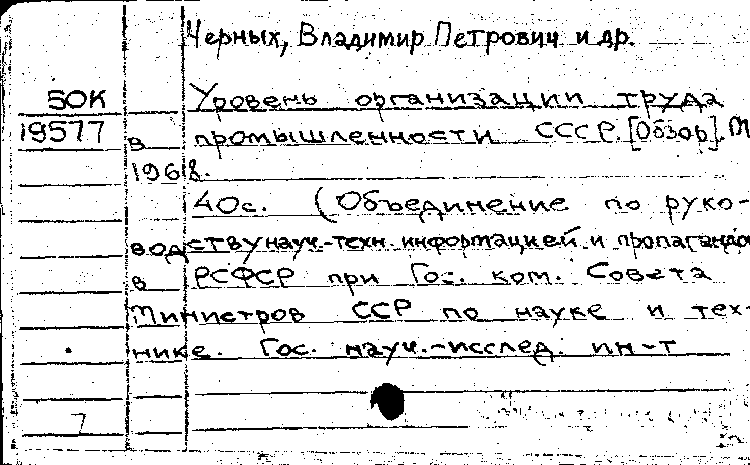 Черных, Владимир Петрович и др.
БОК Уровень организации труда
19577 в промышленности СССР. [Обзор]. М
1968.
40с. (Объединение по руко-
водству науч.-техн. информацией и пропаганды
в РСФСР при Гос. ком. Совета
Министров ССР по науке и тех-
нике. Гос. науч.-исслед. ин-т
7